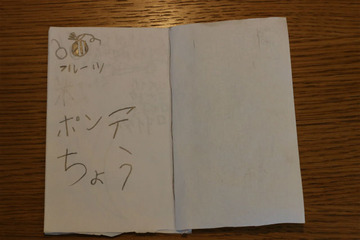 フルーツ
ポンデ
ちょう